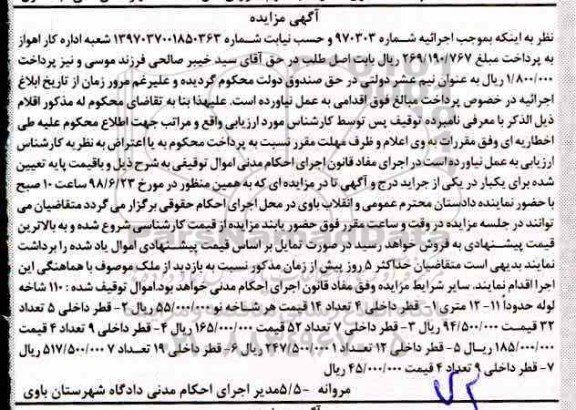 آگهی مزایده
نظر به اینکه بموجب اجرائیه شماره ۹۷۰۳۰۳ و حسب نیابت شماره ۱۳۹۷۰۳۷۰۰۱۸۵۰۳۶۳ شعبه اداره کار اهواز
به پرداخت مبلغ ۲۶۹/۱۹۰/۷۶۷ ریال بابت اصل طلب در حق آقای سید خیبر صالحی فرزند موسی و نیز پرداخت
۱/۸۰۰/۰۰۰ ریال به عنوان نیم عشر دولتی در حق صندوق دولت محکوم گردیده و علیرغم مرور زمان از تاریخ ابلاغ
اجرائیه در خصوص پرداخت مبالغ فوق اقدامی به عمل نیاورده است. علیهذا بنا به تقاضای محکوم له مذکور اقلام
ذیل الذکر با معرفی نامبرده توقیف پس توسط کارشناس مورد ارزیابی واقع و مراتب جهت اطلاع محکوم علیه طی
اخطاریه ای وفق مقررات به وی اعلام و ظرف مهلت مقرر نسبت به پرداخت محکوم به یا اعتراض به نظریه کارشناس
ارزیابی به عمل نیاورده است در اجرای مفاد قانون اجرای احکام مدنی اموال توقیفی به شرح ذیل و باقیمت پایه تعیین
شده برای یکبار در یکی از جراید درج و آگهی تا در مزایده ای که به همین منظور در مورخ ۹۸/۶/۲۳ ساعت ۱۰ صبح
با حضور نماینده دادستان محترم عمومی و انقلاب باوی در محل اجرای احکام حقوقی برگزار می گردد متقاضیان می
توانند در جلسه مزایده در وقت و ساعت مقرر فوق حضور یابند مزایده از قیمت کارشناسی شروع شده و به بالاترین
قیمت پیشنهادی به فروش خواهد رسید در صورت تمایل بر اساس قیمت پیشنهادی اموال یاد شده را برداشت
نمایند بدیهی است متقاضیان حداکثر ۵ روز پیش از زمان مذکور نسبت به بازدید از ملک موصوف با هماهنگی این
اجرا اقدام نمایند. سایر شرایط مزایده وفق مفاد قانون اجرای احکام مدنی خواهد بود. اموال توقیف شده : ۱۱۰ شاخه
لوله حدوداً ۱۱-۱۳ متری ۱- قطر داخلی ۴ تعداد ۱۴ قیمت هر شاخه نو ۵۵/۰۰۰/۰۰۰ ریال ۲- قطر داخلی ۵ تعداد
۳۲ قیمت ۹۴/۵۰۰/۰۰۰ ریال ۳- قطر داخلی ۷ تعداد ۵۲ قیمت ۱۶۵/۰۰۰/۰۰۰ ریال ۴- قطر داخلی ۹ تعداد ۴ قیمت
۱۸۵/۰۰۰/۰۰۰ ریال ۵- قطر داخلی ۱۲ تعداد ۱ ۲۴۷/۵۰۰/۰۰۰ ریال ۶- قطر داخلی ۱۹ تعداد ۷ ۵۱۷/۵۰۰/۰۰۰ ریال
۷- قطر داخلی ۹ تعداد ۴ قیمت ۴۵/۰۰۰/۰۰۰ ریال
مروانه -۵/۵ مدیر اجرای احکام مدنی دادگاه شهرستان باوی